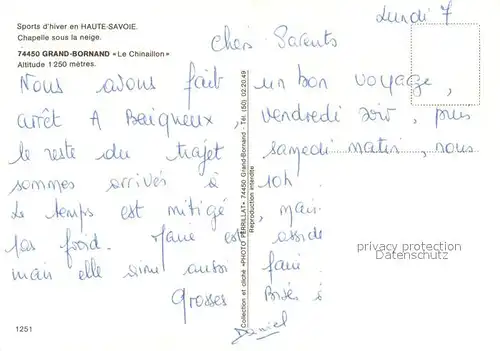 Sports d'hiver en HAUTE-SAVOIE.
Chapelle sous la neige.
74450 GRAND-BORNAND «Le Chinaillon»
Altitude 1 250 mètres.
Lundi 7
chers Parents
Nous avons fait un bon voyage,
arrêt A Baigneux, vendredi soir, puis
le reste du trajet samedi matin, nous
sommes arrivés à 10h.
Le temps est mitigé, mais
pas froid. est
mais elle aime aussi faire
Grosses Bises à
Daniel
Collection et cliché «PHOTO PERRILLAT» 74450 Grand-Bornand - Tél. (50) 02.20.49
Reproduction interdite
privacy protection
DELCAMPE.NET
1251